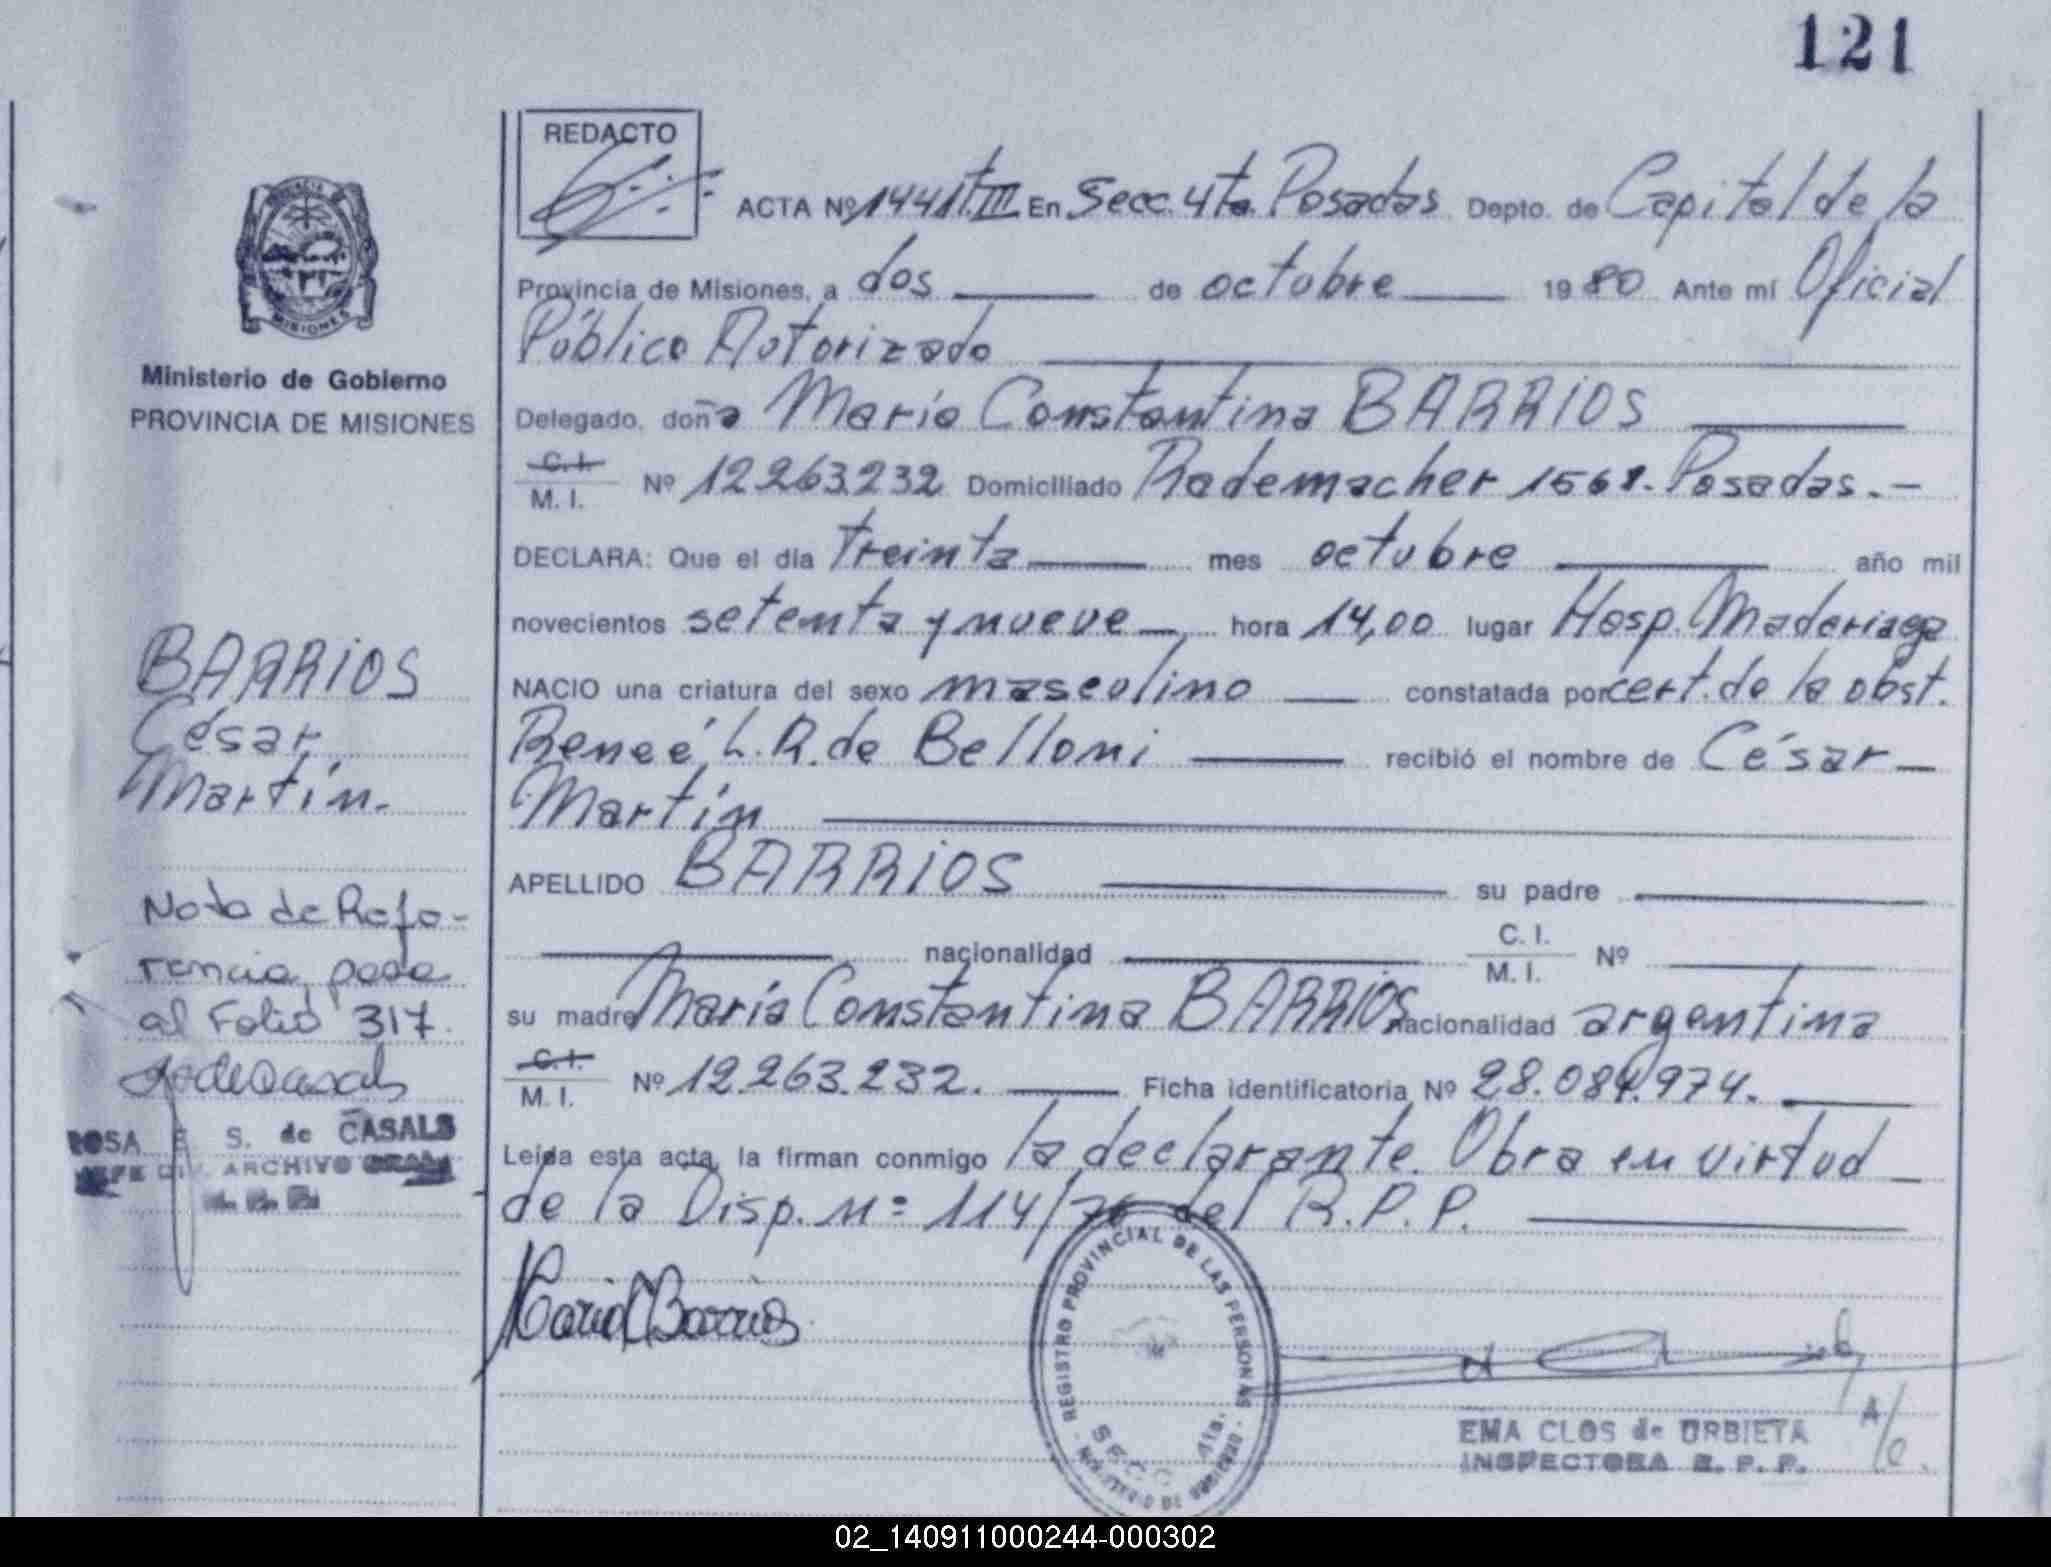 121
REDACTO
ACTA Nº 1441 t. III En Secc. 4ta. Posadas Depto. de Capital de la
Provincia de Misiones, a dos de octubre 1980 Ante mí Oficial
Público Autorizado
Delegado, doña María Constantina BARRIOS
C. I.
M. I. Nº 12.263.232 Domiciliado Rademacher 1568. Posadas.-
DECLARA: Que el día treinta mes octubre año mil
novecientos setenta y nueve hora 14,00 lugar Hosp. Madariaga
NACIO una criatura del sexo masculino constatada por cert. de la obst.
Reneé L. R. de Belloni recibió el nombre de César
Martín
APELLIDO BARRIOS su padre
nacionalidad C. I.
M. I. Nº
su madre María Constantina BARRIOS nacionalidad argentina
C. I.
M. I. Nº 12.263.232. Ficha identificatoria Nº 28.084.974.
Leída esta acta, la firman conmigo la declarante. Obra en virtud
de la Disp. Nº 114/76 del R. P. P.
Maria C Barrios
REGISTRO PROVINCIAL DE LAS PERSONAS
SECC. 4ta.
MINISTERIO DE GOBIERNO
EMA CLOS de URBIETA
INSPECTORA R. P. P.
A/c.
PROVINCIA DE
MISIONES
Ministerio de Gobierno
PROVINCIA DE MISIONES
BARRIOS
César
Martín.
Nota de Refe-
rencia pasa
al Folio 317.
ROSA E. S. de CASALS
JEFE DIV. ARCHIVO GRAL
02_140911000244-000302